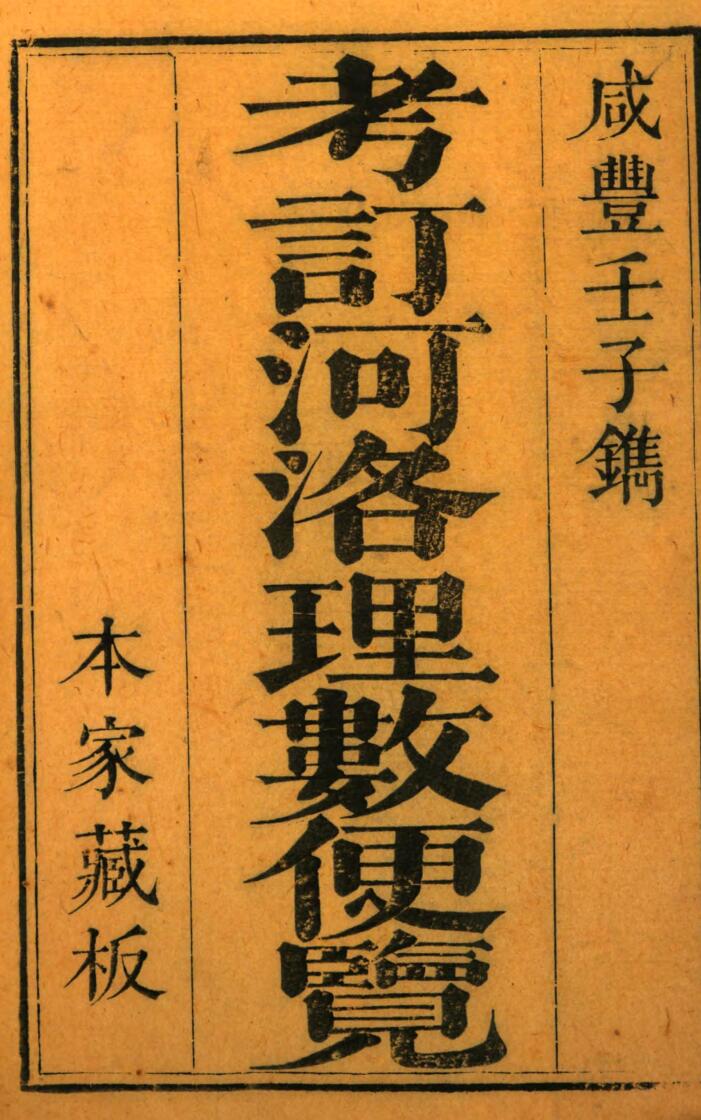 咸豐壬子鐫
考訂河洛理數便覽
本家藏板